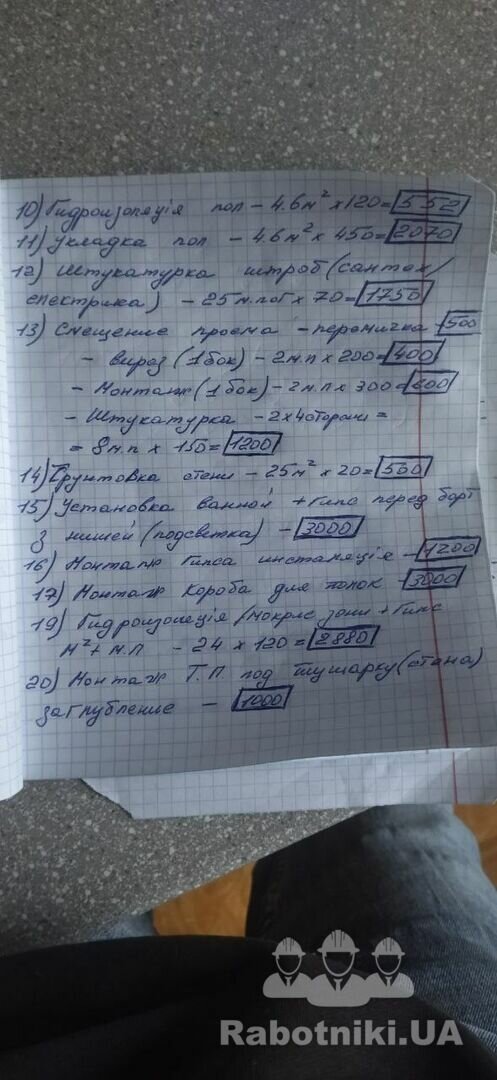 10) Гидроизоляція пол - 4.6м² х120= 552
11) Укладка пол - 4.6м² х 450= 2070
12) Штукатурка штроб (сантех/
електрика) - 25м.пог х 70= 1750
13) Смещение проема - перемичка - 500
- вираз (1бок) - 2м.п х 200= 400
- Монтаж (1бок) - 2м.п х 300= 600
- Штукатурка - 2х4сторони =
= 8м.п х 150= 1200
14) Грунтовка стени - 25м² х 20= 500
15) Установка ванной + Гипс перед борт
з нишей (подсветка) - 3000
16) Монтаж Гипса инсталяція - 1200
17) Монтаж короба для полок - 3000
19) Гидроизоляція /мокрие зони + Гипс
м²+ м.п - 24 х 120= 2880
20) Монтаж Т.П под сушарку (стена)
заглубление - 1000
Rabotniki.UA